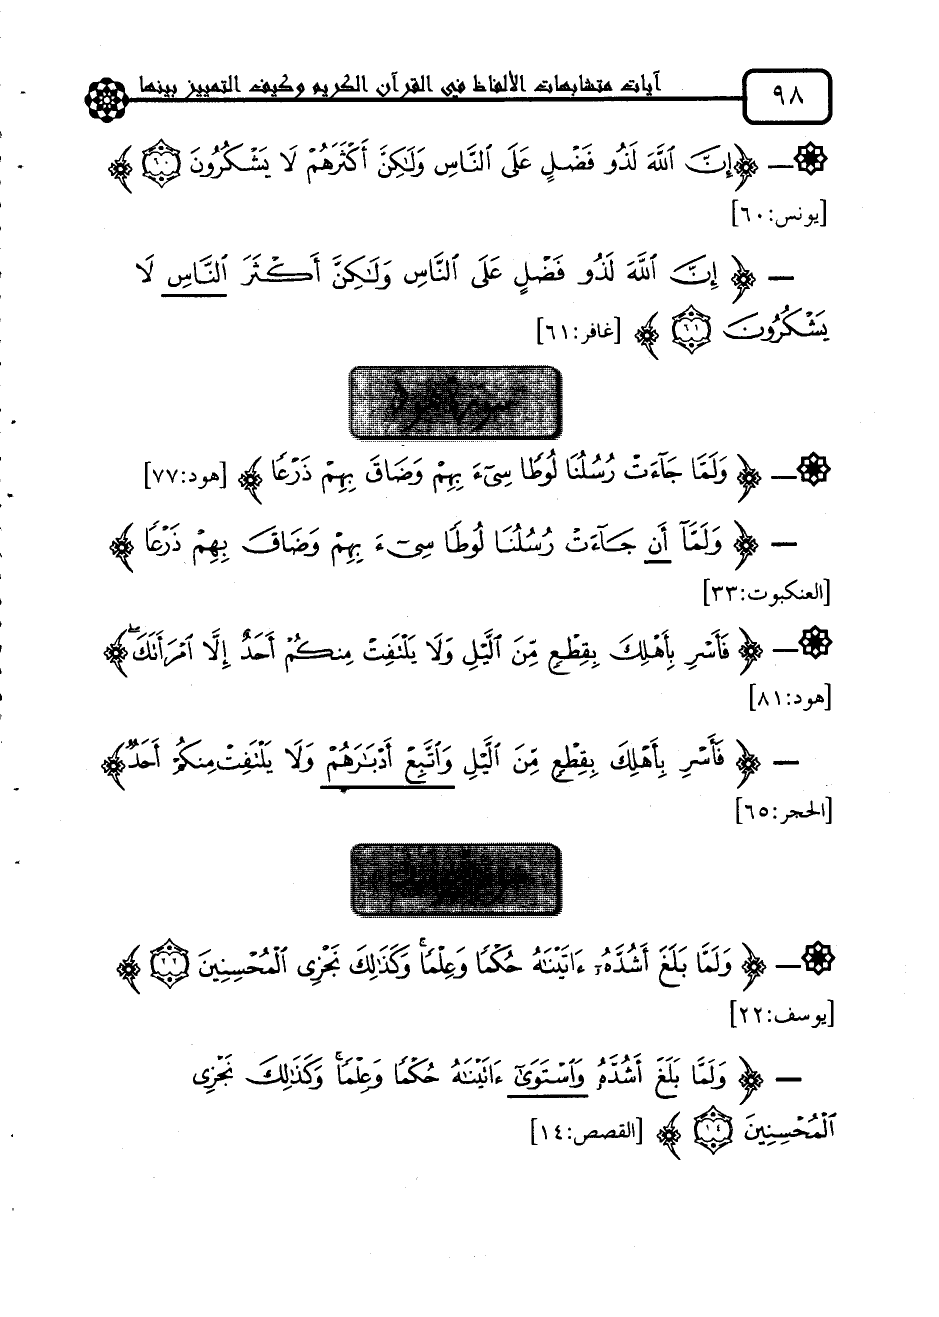 ٩٨
آيات متشابهات الألفاظ في القرآن الكريم وكيف التمييز بينها
— ﴿إِنَّ اللَّهَ لَذُو فَضْلٍ عَلَى النَّاسِ وَلَٰكِنَّ أَكْثَرَهُمْ لَا يَشْكُرُونَ ٦٠﴾
[يونس:٦٠]
— ﴿إِنَّ اللَّهَ لَذُو فَضْلٍ عَلَى النَّاسِ وَلَٰكِنَّ أَكْثَرَ النَّاسِ لَا
يَشْكُرُونَ ٦١﴾ [غافر:٦١]
سورة هود
— ﴿وَلَمَّا جَآءَتْ رُسُلُنَا لُوطًا سِىٓءَ بِهِمْ وَضَاقَ بِهِمْ ذَرْعًا﴾ [هود:٧٧]
— ﴿وَلَمَّآ أَن جَآءَتْ رُسُلُنَا لُوطًا سِىٓءَ بِهِمْ وَضَاقَ بِهِمْ ذَرْعًا﴾
[العنكبوت:٣٣]
— ﴿فَأَسْرِ بِأَهْلِكَ بِقِطْعٍ مِّنَ الَّيْلِ وَلَا يَلْتَفِتْ مِنكُمْ أَحَدٌ إِلَّا امْرَأَتَكَ ۖ﴾
[هود:٨١]
— ﴿فَأَسْرِ بِأَهْلِكَ بِقِطْعٍ مِّنَ الَّيْلِ وَاتَّبِعْ أَدْبَٰرَهُمْ وَلَا يَلْتَفِتْ مِنكُمْ أَحَدٌ﴾
[الحجر:٦٥]
— ﴿وَلَمَّا بَلَغَ أَشُدَّهُۥٓ ءَاتَيْنَٰهُ حُكْمًا وَعِلْمًا ۚ وَكَذَٰلِكَ نَجْزِى الْمُحْسِنِينَ ٢٢﴾
[يوسف:٢٢]
— ﴿وَلَمَّا بَلَغَ أَشُدَّهُۥ وَاسْتَوَىٰٓ ءَاتَيْنَٰهُ حُكْمًا وَعِلْمًا ۚ وَكَذَٰلِكَ نَجْزِى
الْمُحْسِنِينَ ١٤﴾ [القصص:١٤]